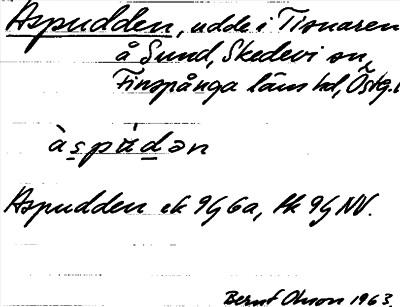 Aspudden, udde i Tisnaren
å Sund, Skedevi sn,
Finspånga läns hd, Östg.l
àspúdən
Aspudden ek 9G 6a, tk 9G NV.
Bernt Olsson 1963.